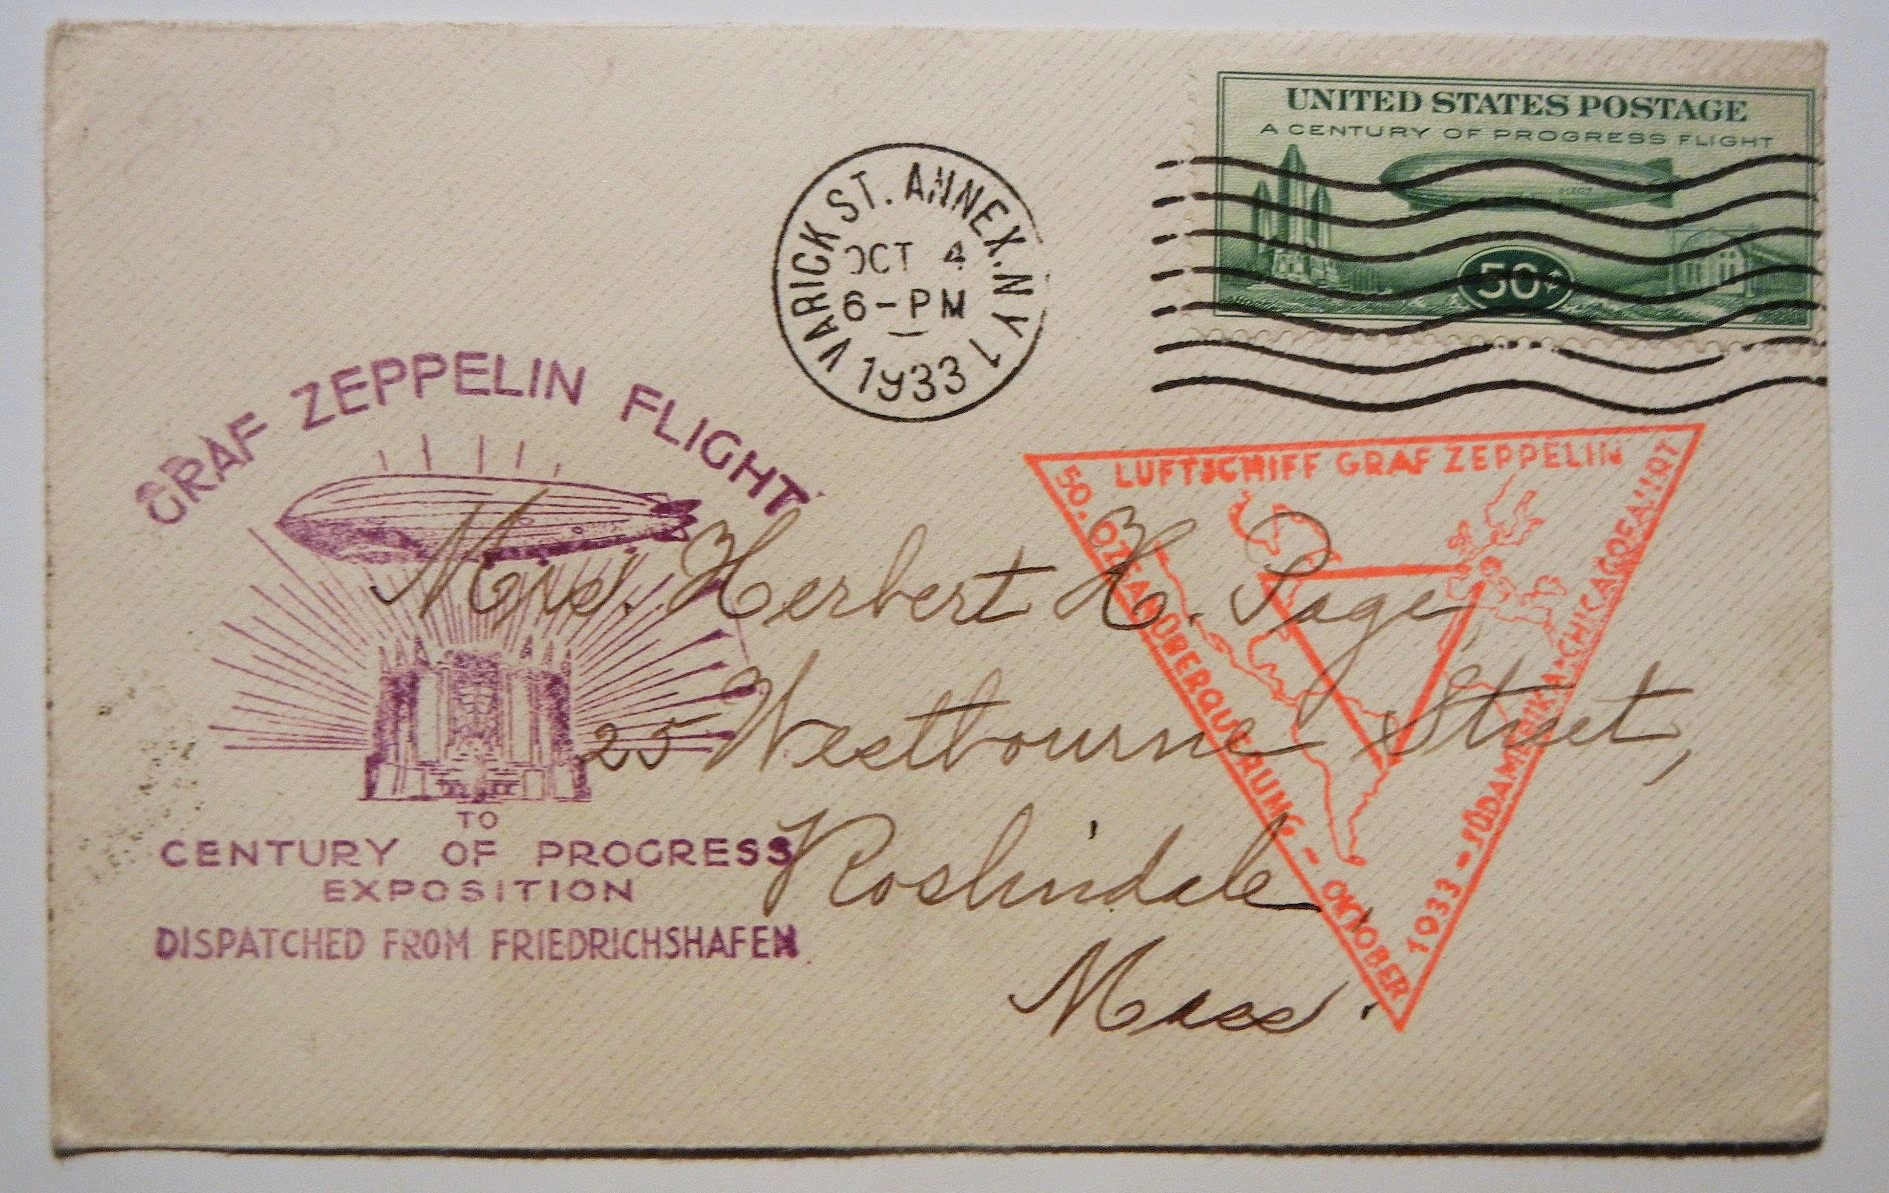 UNITED STATES POSTAGE
A CENTURY OF PROGRESS FLIGHT
50¢
VARICK ST. ANNEX. N Y 1
OCT 4
6-PM
1933
GRAF ZEPPELIN FLIGHT
TO
CENTURY OF PROGRESS
EXPOSITION
DISPATCHED FROM FRIEDRICHSHAFEN
LUFTSCHIFF GRAF ZEPPELIN
50. OZEANÜBERQUERUNG - OKTOBER
1933 - SÜDAMERIKA-CHICAGOFAHRT
Mrs. Herbert H. Page,
25 Westbourne Street,
Roslindale,
Mass.